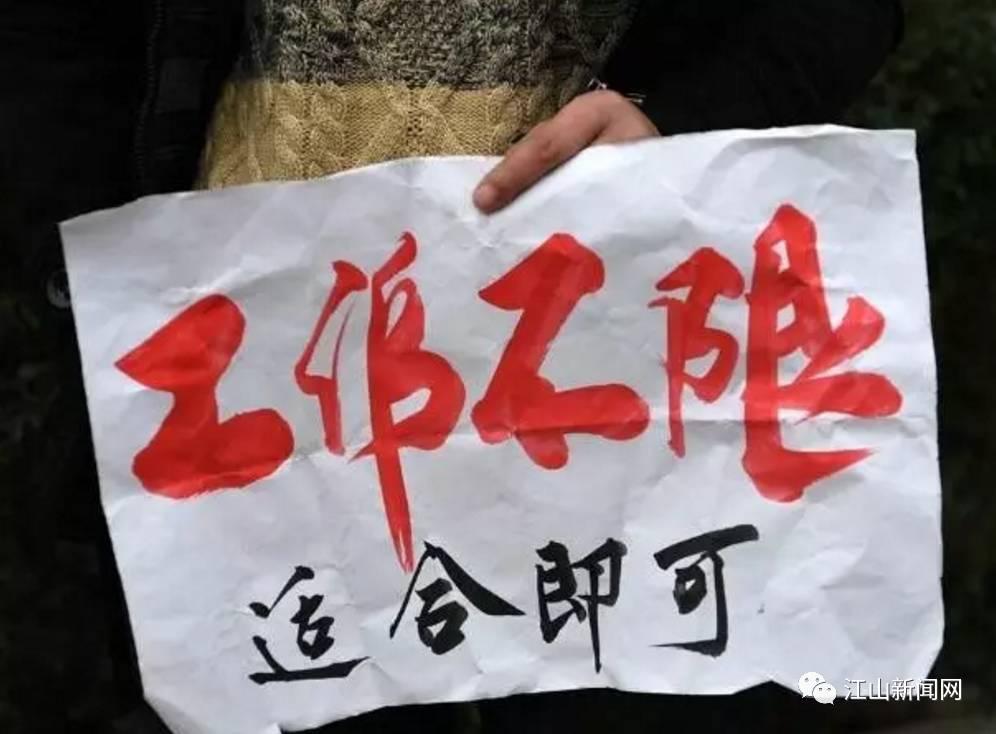 工作不限
适合即可
江山新闻网